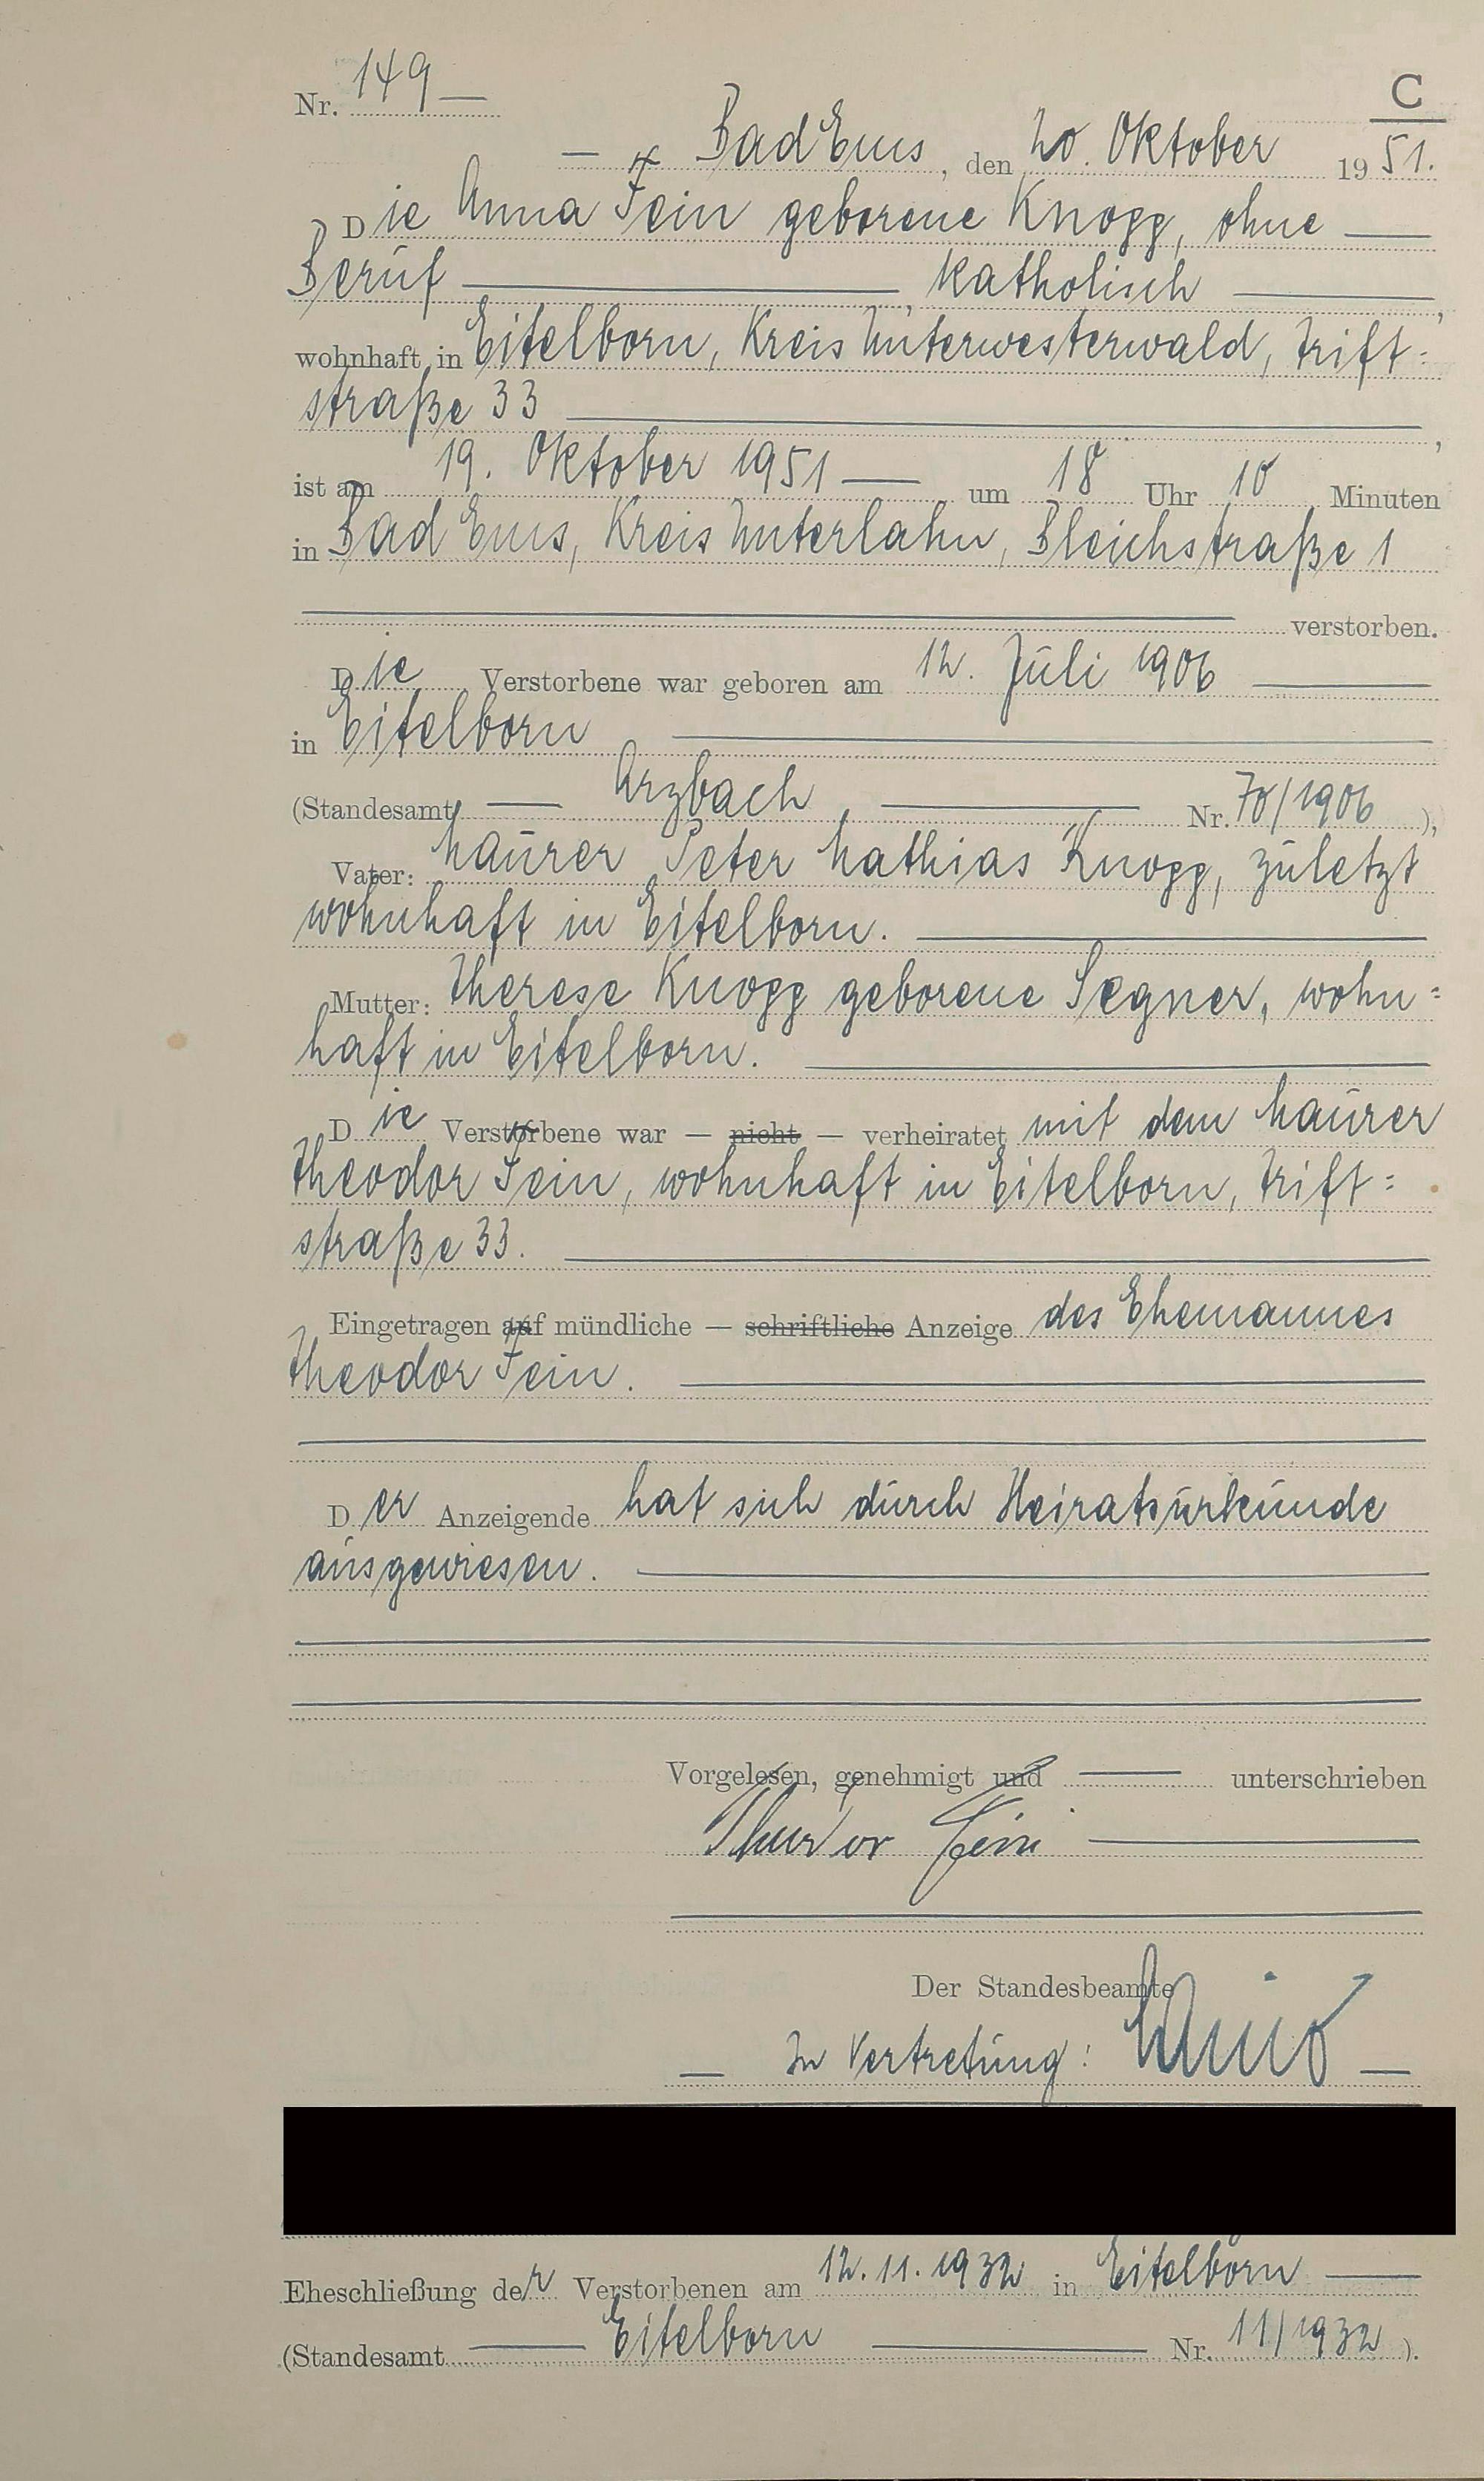 Nr. 149
C
Bad Ems, den 20. Oktober 1951.
Die Anna Fein geborene Knopp, ohne
Beruf, katholisch,
wohnhaft in Eitelborn, Kreis Unterwesterwald, Trift=
straße 33,
ist am 19. Oktober 1951 um 18 Uhr 10 Minuten
in Bad Ems, Kreis Unterlahn, Bleichstraße 1
verstorben.
Die Verstorbene war geboren am 12. Juli 1906
in Eitelborn
(Standesamt Arzbach Nr. 70/1906),
Vater: Maurer Peter Mathias Knopp, zuletzt
wohnhaft in Eitelborn.
Mutter: Therese Knopp geborene Segner, wohn=
haft in Eitelborn.
Die Verstorbene war — nicht — verheiratet mit dem Maurer
Theodor Fein, wohnhaft in Eitelborn, Trift=
straße 33.
Eingetragen auf mündliche — schriftliche Anzeige des Ehemannes
Theodor Fein.
Der Anzeigende hat sich durch Heiratsurkunde
ausgewiesen.
Vorgelesen, genehmigt und unterschrieben
Theodor Fein
Der Standesbeamte
In Vertretung:
Eheschließung der Verstorbenen am 12.11.1932 in Eitelborn
(Standesamt Eitelborn Nr. 11/1932).